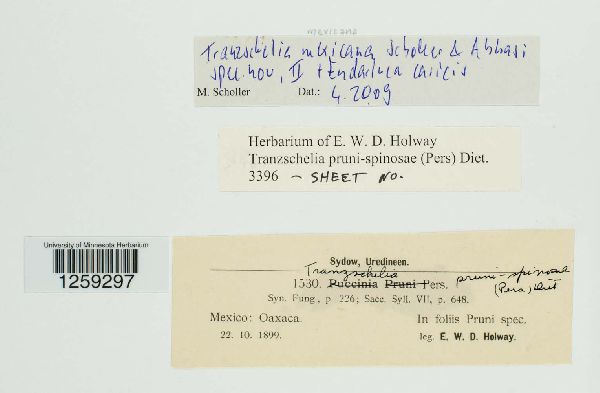 mexicana
Tranzschelia mexicana Scholler & Abbasi
spec. nov., II + Endarluca caricis
M. Scholler Dat.: 4.2009
Herbarium of E. W. D. Holway
Tranzschelia pruni-spinosae (Pers) Diet.
3396 – SHEET NO.
University of Minnesota Herbarium
1259297
Sydow, Uredineen.
Tranzschelia pruni-spinosae
1530. Puccinia Pruni Pers. (Pers.) Diet
Syn. Fung., p. 226; Sacc. Syll. VII, p. 648.
Mexico: Oaxaca. In foliis Pruni spec.
22. 10. 1899. leg. E. W. D. Holway.